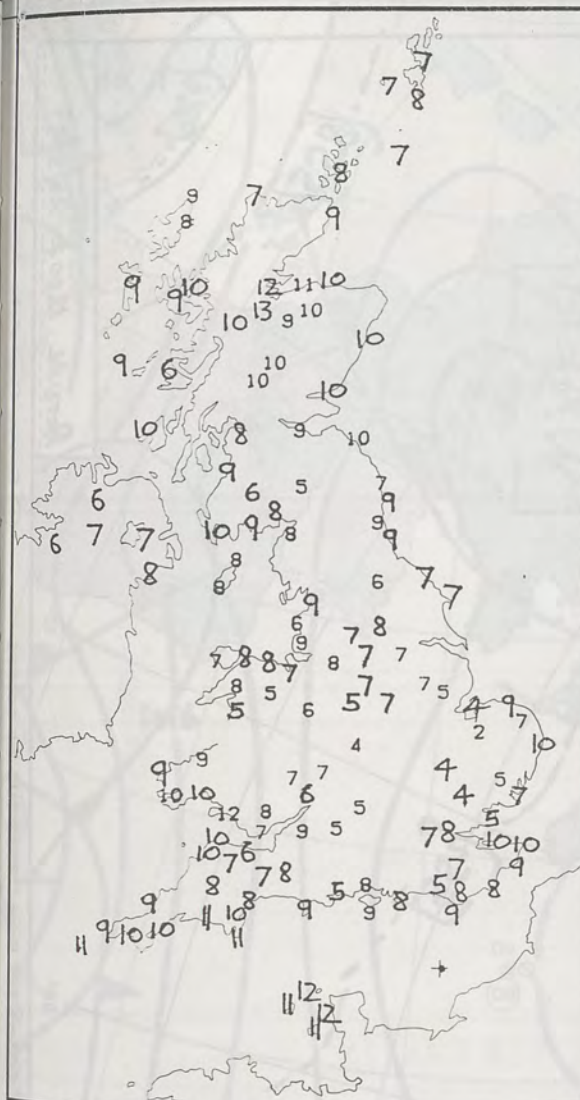 7
7 8
7
8
9 7 9
8
9 9 10 12 11 10
10 13 9 10
10
9 6 10
10 10
10 8 9 10
9 7
6 6 5 9
6 7 7 10 9 8 8 9 9
8 8
8 6 7 7
9
6 7 8
9
7 8 8 7 8 7 7
8 5 7 7 5
5 6 5 7 4 9
2 7
9 9 4 10
10 10 7 7 6 4 4 5 7
12 8 5 5
10 7 9 5 7 8 10 10
10 7 6
8 7 8 7 9
9 8 5 8 8 5 8 8
11 10 9 9 9
11 9 10 10 11
12
11 11 12